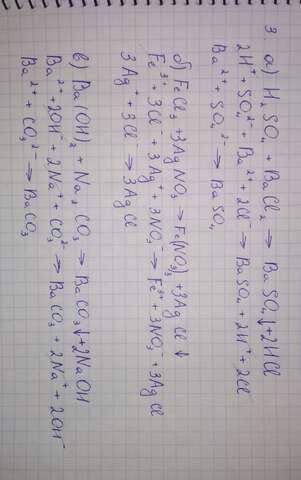 3 а) H₂SO₄ + BaCl₂ → BaSO₄↓ + 2HCl
2H⁺ + SO₄²⁻ + Ba²⁺ + 2Cl⁻ → BaSO₄ + 2H⁺ + 2Cl⁻
Ba²⁺ + SO₄²⁻ → BaSO₄
б) FeCl₃ + 3AgNO₃ → Fe(NO₃)₃ + 3AgCl↓
Fe³⁺ + 3Cl⁻ + 3Ag⁺ + 3NO₃⁻ → Fe³⁺ + 3NO₃⁻ + 3AgCl
3Ag⁺ + 3Cl⁻ → 3AgCl
в) Ba(OH)₂ + Na₂CO₃ → BaCO₃↓ + 2NaOH
Ba²⁺ + 2OH⁻ + 2Na⁺ + CO₃²⁻ → BaCO₃ + 2Na⁺ + 2OH⁻
Ba²⁺ + CO₃²⁻ → BaCO₃